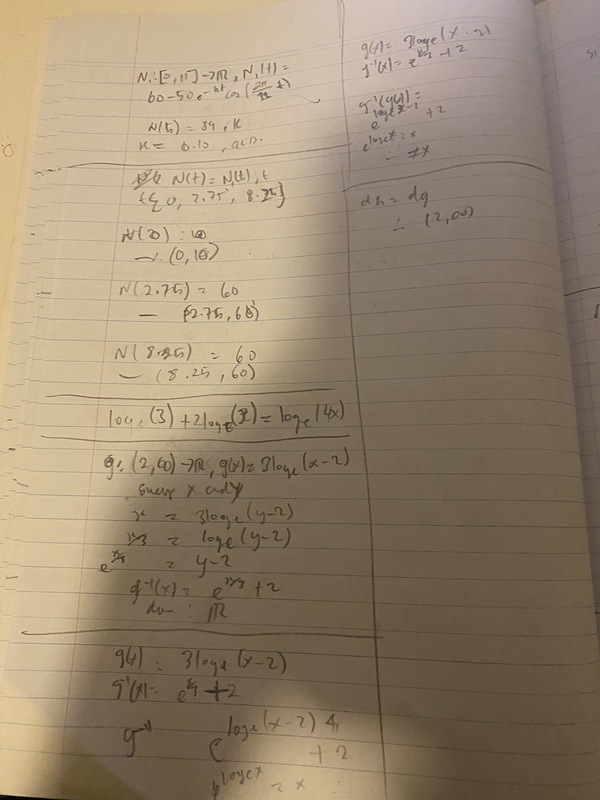 N₁: [0,11] → ℝ, N₁(t) =
60-50e^-kt cos(2π/11 t)
N(5) = 84, k
k = 0.10,
N(t) = N₁(t), t
t { 0, 2.75, 8.25}
N(0) = 10
→ (0,10)
N(2.75) = 60
— (2.75, 60)
N(8.25) = 60
— (8.25, 60)
logₑ(3) + 2logₑ(x) = logₑ(4x)
g: (2,∞) → ℝ, g(x) = 3logₑ(x-2)
swap x and y
x = 3logₑ(y-2)
x/3 = logₑ(y-2)
e^x/3 = y-2
g⁻¹(x) = e^x/3 + 2
: ℝ
g(x) = 3logₑ(x-2)
g⁻¹(x) = e^x/3 + 2
e^logₑ(x-2)
+ 2
logₑx = x
g(x) = 3logₑ(x-2)
g⁻¹(x) = e^x/3 + 2
g⁻¹(g(x)) =
e^logₑx-2 + 2
e^logₑx = x
∴ = x
dh = dg
∴ (2,∞)